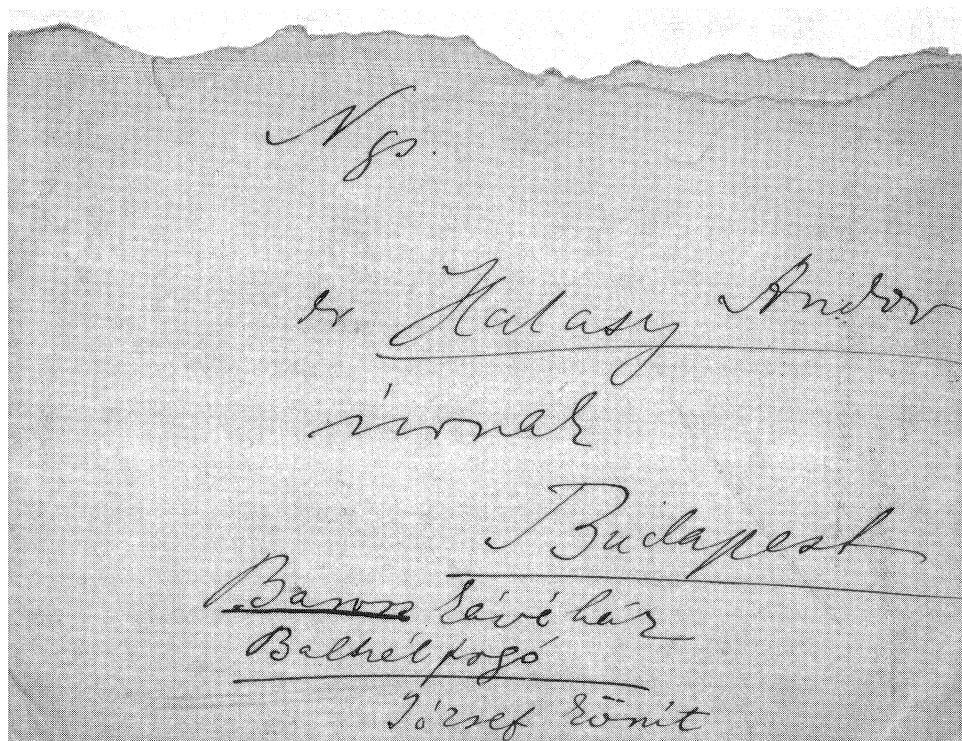 Ngs.
dr Halasy Andor
úrnak
Budapest
Baross kávéház
József körút